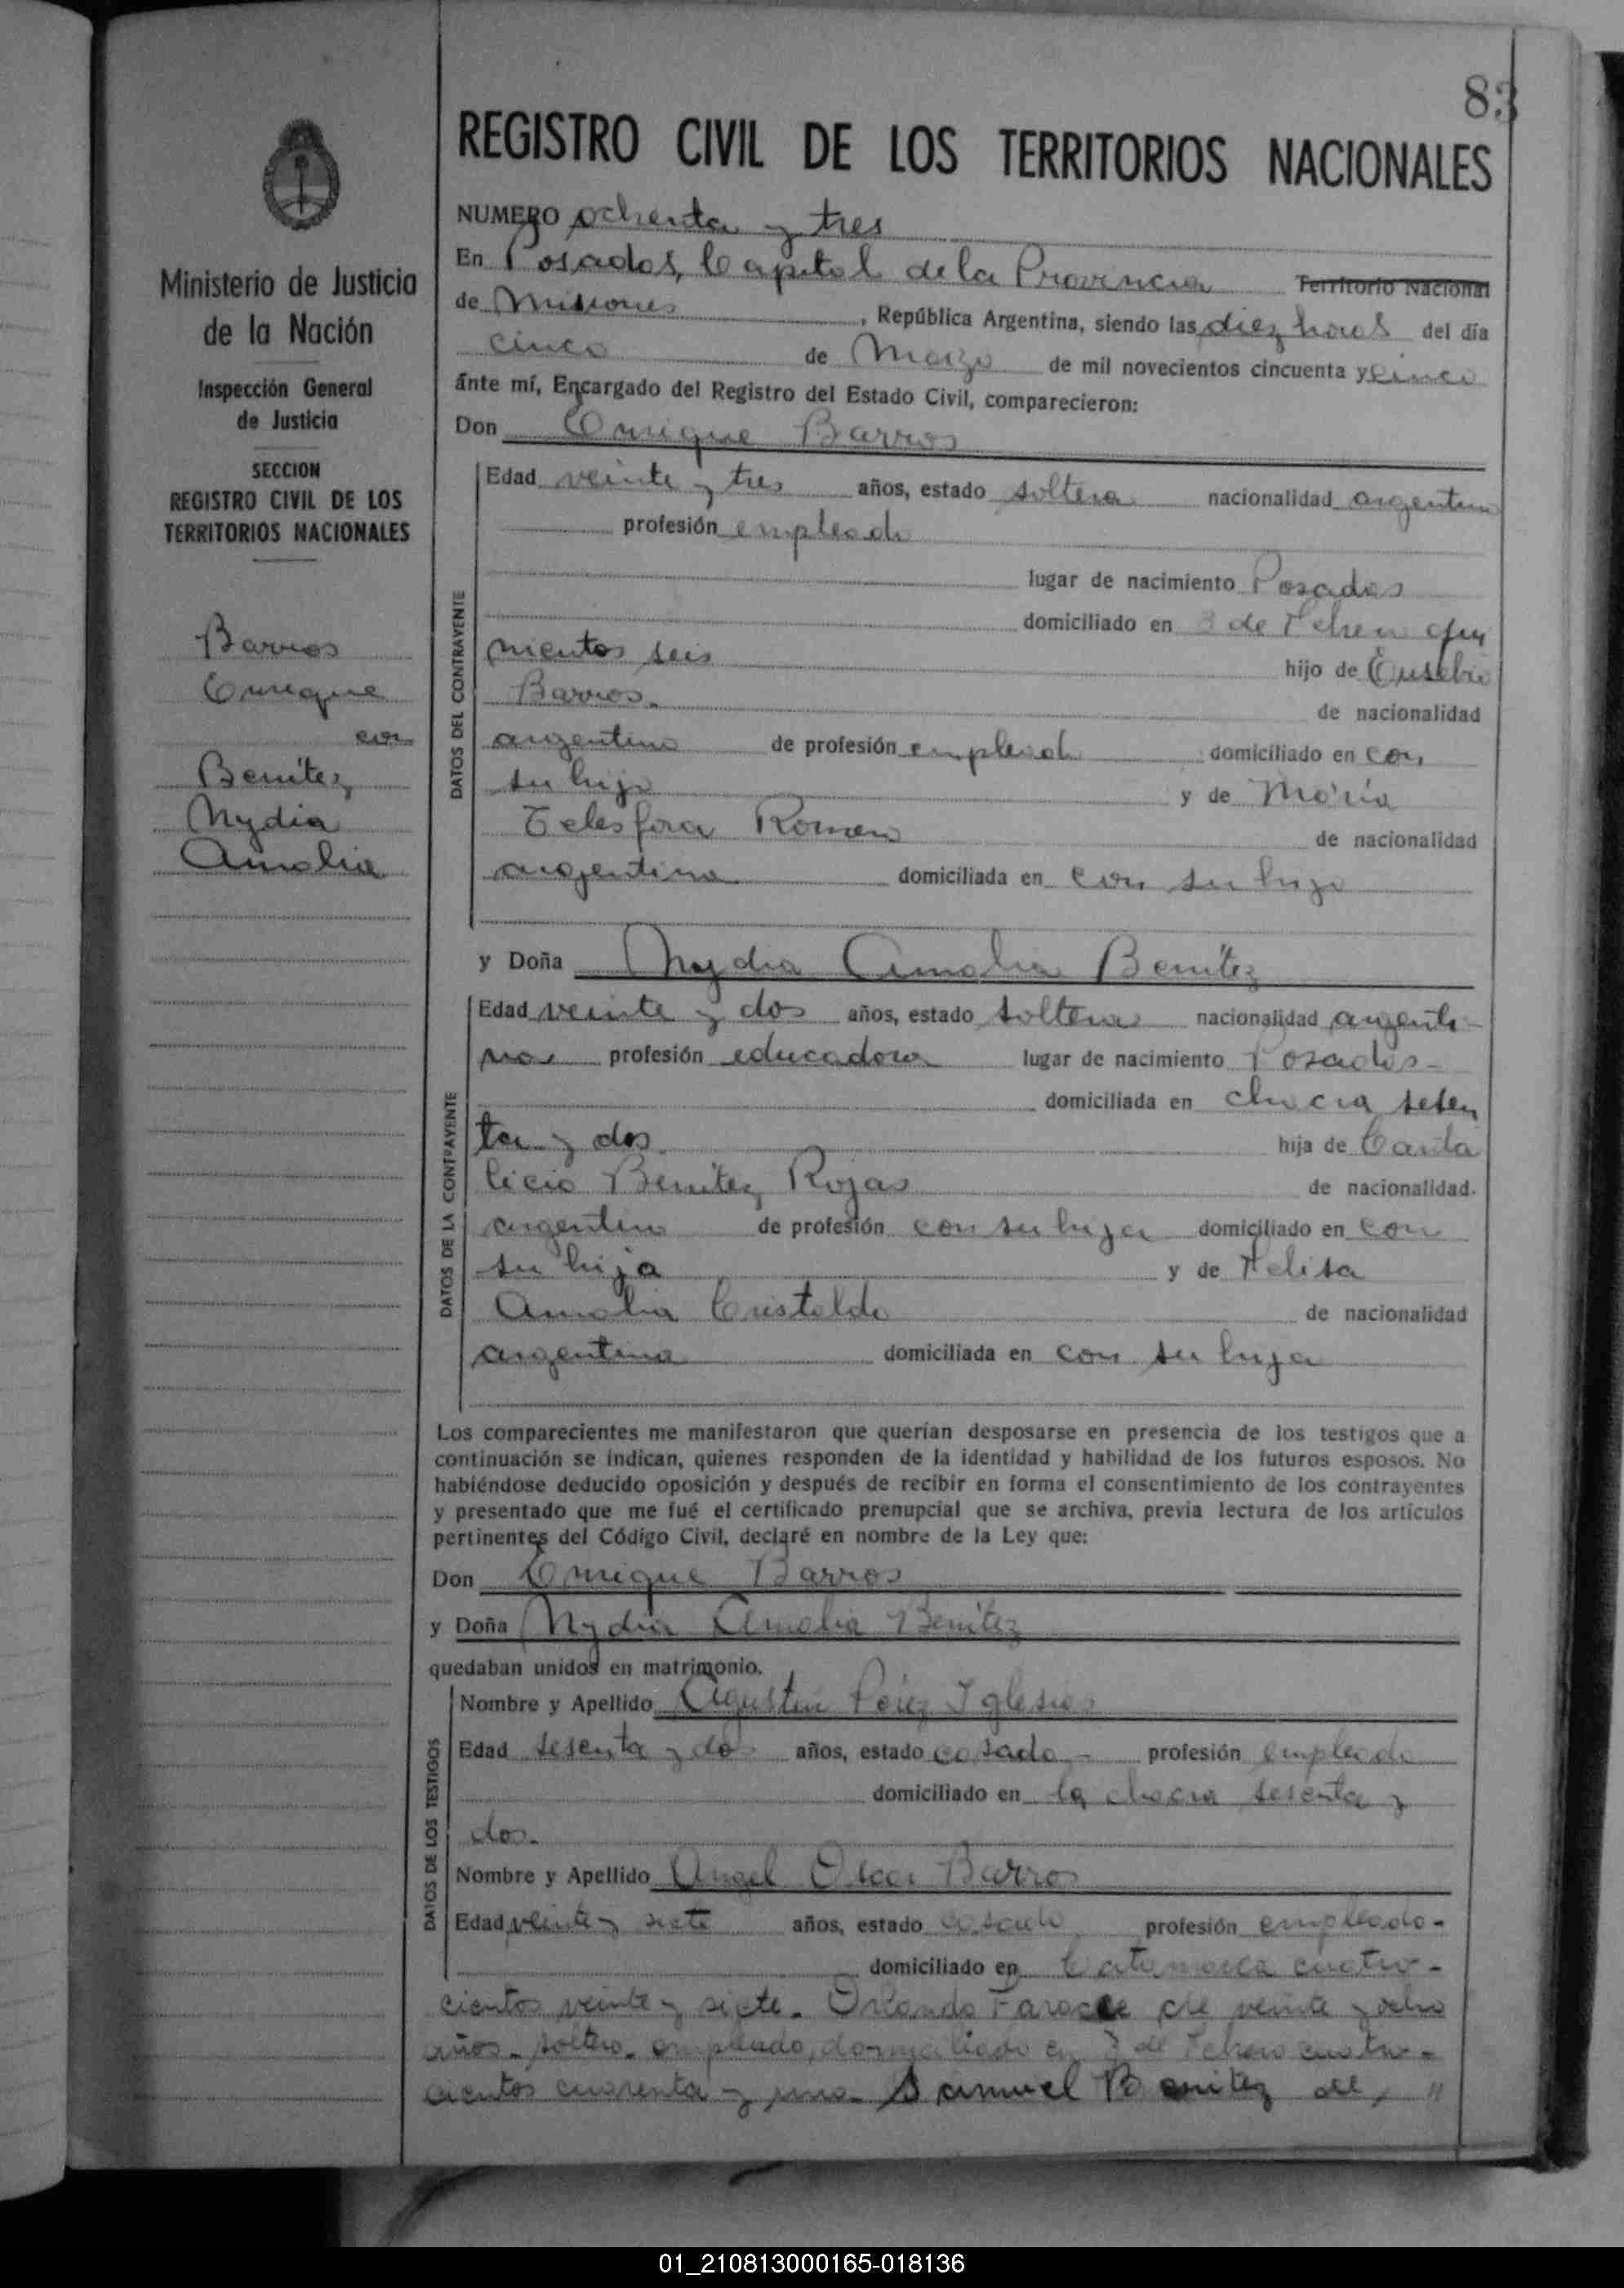 83
REGISTRO CIVIL DE LOS TERRITORIOS NACIONALES
Ministerio de Justicia
de la Nación
Inspección General
de Justicia
SECCION
REGISTRO CIVIL DE LOS
TERRITORIOS NACIONALES
Barros
Enrique
con
Benítez
Nydia
Amalia
NUMERO ochenta y tres
En Posadas, Capital de la Provincia Territorio Nacional
de Misiones, República Argentina, siendo las diez horas del día
cinco de Marzo de mil novecientos cincuenta y cinco
ánte mí, Encargado del Registro del Estado Civil, comparecieron:
Don Enrique Barros
DATOS DEL CONTRAYENTE
Edad veinte y tres años, estado soltero nacionalidad argentino
profesión empleado
lugar de nacimiento Posadas
domiciliado en 3 de Febrero qui
nientos seis hijo de Eusebio
Barros. de nacionalidad
argentino de profesión empleado domiciliado en con
su hijo y de María
Telesfora Romero de nacionalidad
argentina domiciliada en con su hijo
y Doña Nydia Amalia Benítez
DATOS DE LA CONTRAYENTE
Edad veinte y dos años, estado soltera nacionalidad argenti-
na profesión educadora lugar de nacimiento Posadas-
domiciliada en chacra sesen
ta y dos hija de Canta
licio Benítez Rojas de nacionalidad.
argentino de profesión con su hija domiciliado en con
su hija y de Felisa
Amalia Cristaldo de nacionalidad
argentina domiciliada en con su hija
Los comparecientes me manifestaron que querían desposarse en presencia de los testigos que a
continuación se indican, quienes responden de la identidad y habilidad de los futuros esposos. No
habiéndose deducido oposición y después de recibir en forma el consentimiento de los contrayentes
y presentado que me fué el certificado prenupcial que se archiva, previa lectura de los artículos
pertinentes del Código Civil, declaré en nombre de la Ley que:
Don Enrique Barros
y Doña Nydia Amalia Benítez
quedaban unidos en matrimonio.
DATOS DE LOS TESTIGOS
Nombre y Apellido Agustín Pérez Iglesias
Edad sesenta y dos años, estado casado - profesión empleado
domiciliado en la chacra sesenta y
dos.
Nombre y Apellido Angel Oscar Barros
Edad veinte y siete años, estado casado profesión empleado-
domiciliado en Catamarca cuatro-
cientos veinte y siete. Orlando de veinte y ocho
años. soltero. empleado, domiciliado en 3 de Febrero cuatro-
cientos cuarenta y uno. Samuel Benitez de, "
01_210813000165-018136